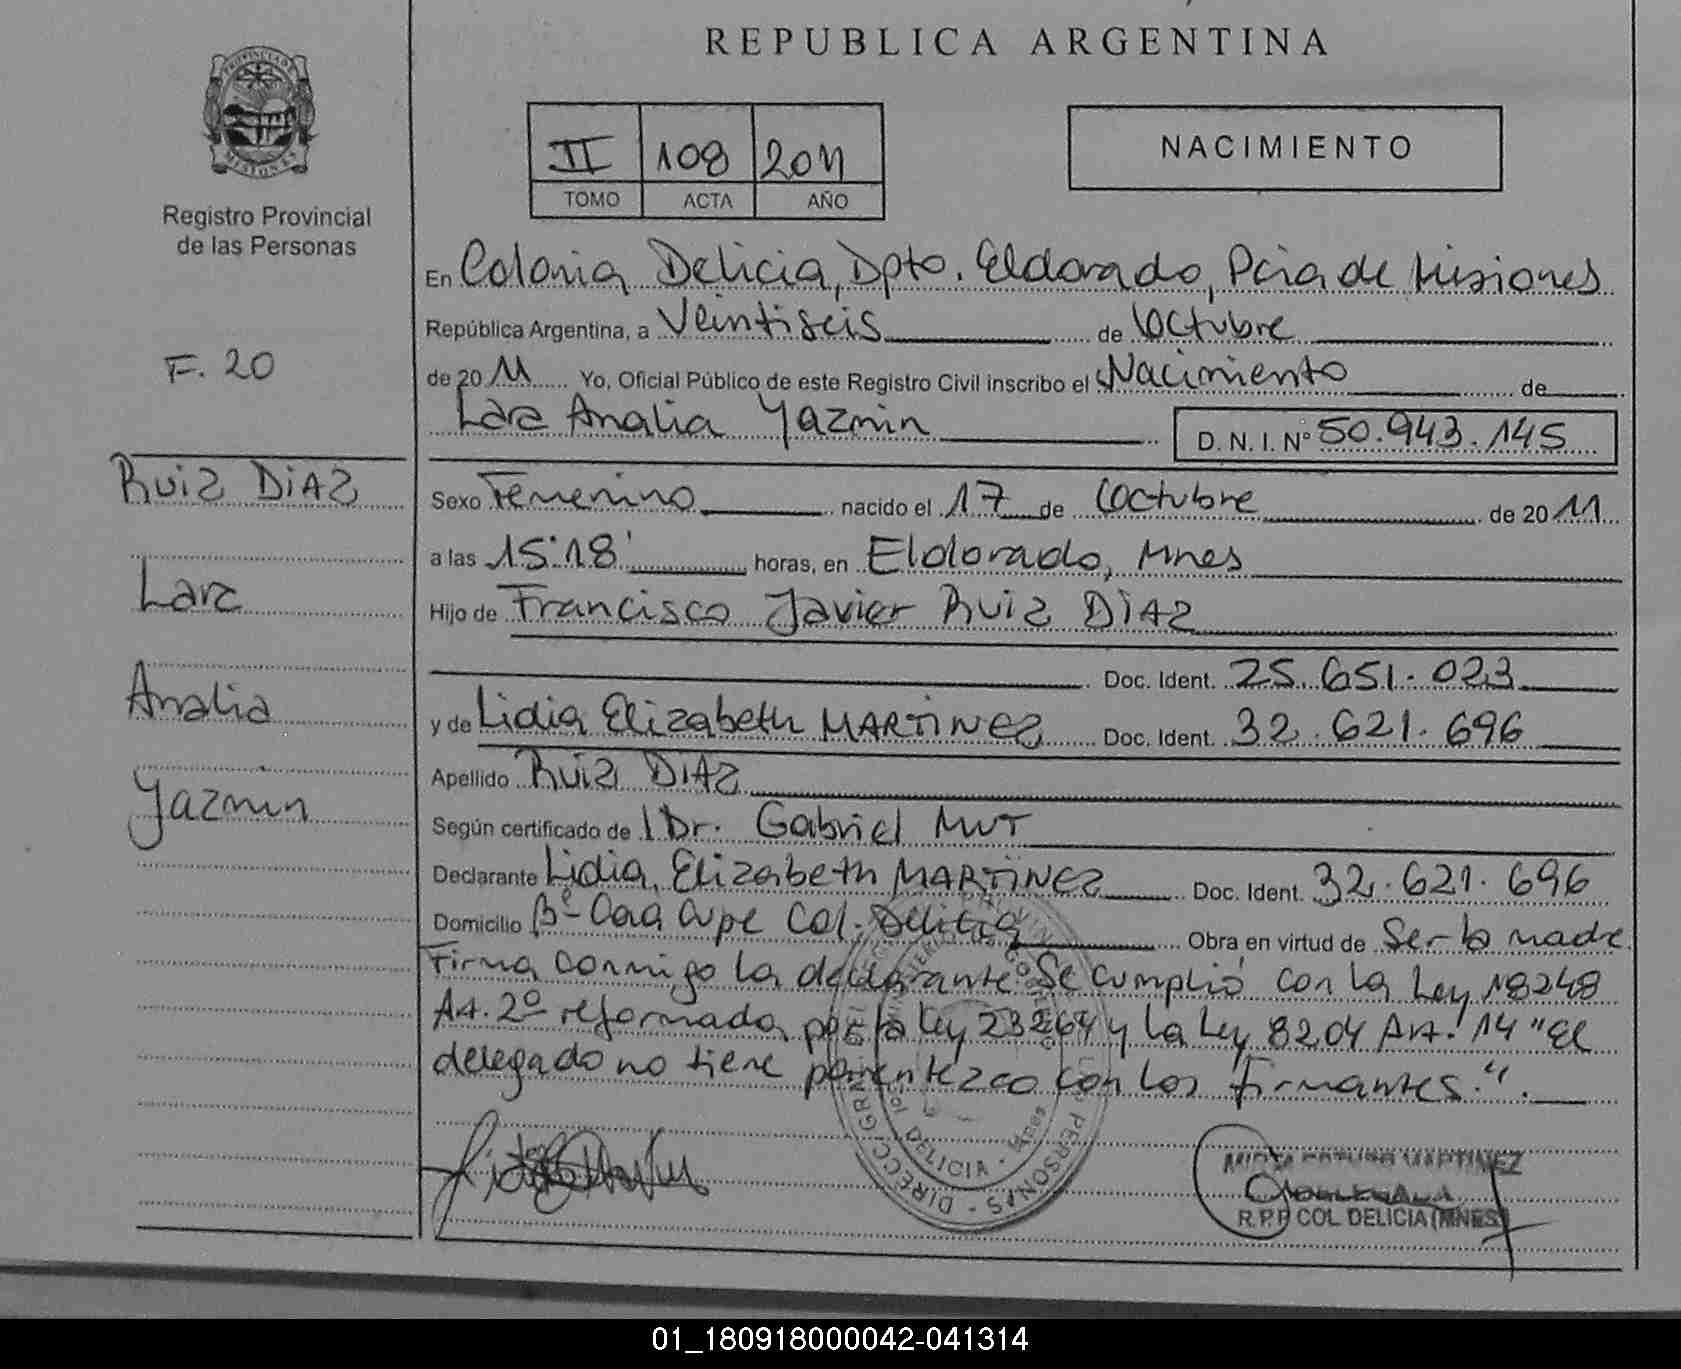 REPUBLICA ARGENTINA
PROVINCIA DE MISIONES
Registro Provincial
de las Personas
II 108 2011
TOMO ACTA AÑO
NACIMIENTO
F. 20
Ruiz DiAz
Lara
Analia
Yazmin
En Colonia Delicia, Dpto. Eldorado, Pcia de Misiones
República Argentina, a Veintiseis de Octubre
de 2011 Yo, Oficial Público de este Registro Civil inscribo el Nacimiento de
Lara Analia Yazmin D. N. I. Nº 50.943.145
Sexo Femenino nacido el 17 de Octubre de 2011
a las 15:18' horas, en Eldorado, Mnes
Hijo de Francisco Javier Ruiz DiAz
Doc. Ident. 25.651.023
y de Lidia Elizabeth MARTiNEz Doc. Ident. 32.621.696
Apellido Ruiz DiAz
Según certificado de 1 Dr. Gabriel
Declarante Lidia Elizabeth MARTiNEz Doc. Ident. 32.621.696
Domicilio Bº Caa Cupe Col. Delicia Obra en virtud de Ser la madre
Firma conmigo la declarante Se cumplió con la Ley 18248
Art. 2º reformada por la Ley 23264 y la Ley 8204 Art. 14 "El
delegado no tiene parentezco con los firmantes."
MARTINEZ
R.P.P COL. DELICIA (MNES)
DELICIA - Mnes
PERSONAS - DIRECC GRAL
01_180918000042-041314